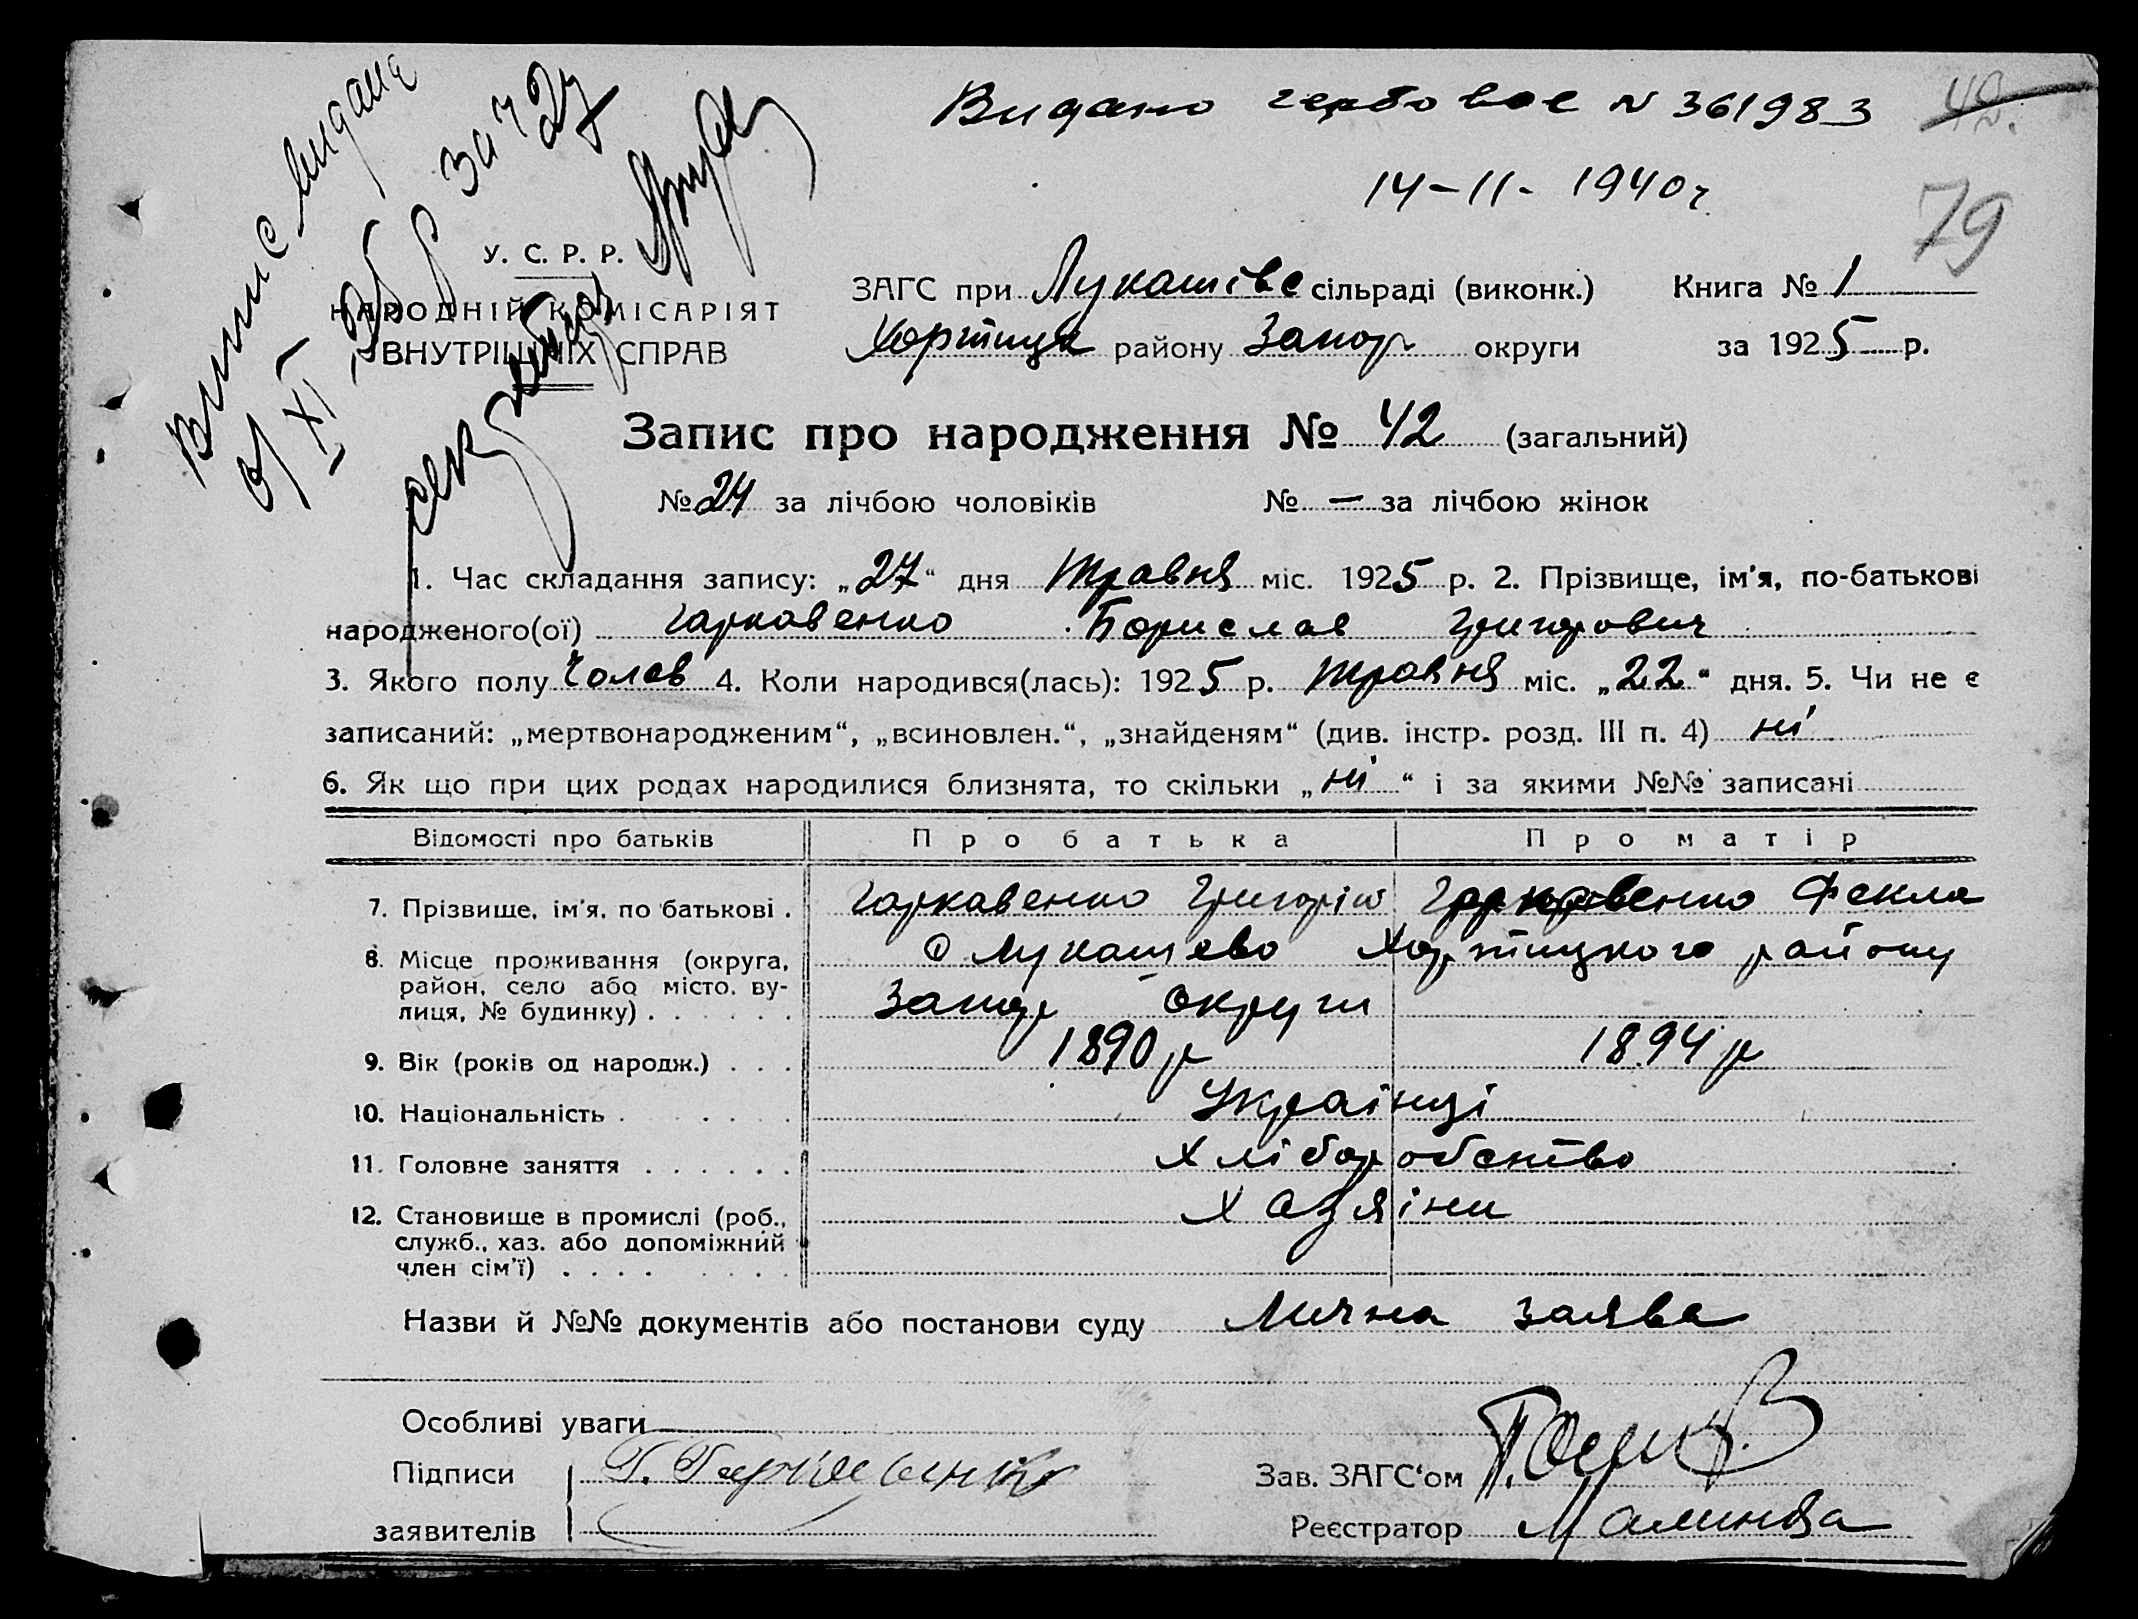 Видано гербовое N 361983
42.
14-11-1940 г.
79
Випис видано
01 XI 25 р за ч 27
У. С. Р. Р.
НАРОДНІЙ КОМІСАРІЯТ
ВНУТРІШНІХ СПРАВ
ЗАГС при Лукашівс сільраді (виконк.) Книга № 1
Хортицьк району Запор округи за 1925 р.
Запис про народження № 42 (загальний)
№ 24 за лічбою чоловіків № — за лічбою жінок
1. Час складання запису: „27“ дня Травня міс. 1925 р. 2. Прізвище, ім'я, по-батькові
народженого(ої) Гаркавенко Борислав Григорович
3. Якого полу Чолов 4. Коли народився(лась): 1925 р. Травня міс. „22“ дня. 5. Чи не є
записаний: „мертвонародженим“, „всиновлен.“, „знайденям“ (див. інстр. розд. III п. 4) ні
6. Як що при цих родах народилися близнята, то скільки „ні“ і за якими №№ записані
Відомості про батьків Про батька Про матір
7. Прізвище, ім'я, по батькові . Гаркавенко Григорій Гаркавенко Фекла
8. Місце проживання (округа, район, село або місто, вулиця, № будинку) . . . . . . с Лукашево Хортицкого району
Запор округи
9. Вік (років од народж.) . . . 1890 р 1894 р
10. Національність . . . . . Українці
11. Головне заняття . . . . . . Хліборобство
12. Становище в промислі (роб., Хазяіни
служб., хаз. або допоміжний
член сім'ї) . . . . . . . .
Назви й №№ документів або постанови суду Лична заява
Особливі уваги
Підписи Г. Гаркавенко Зав. ЗАГС'ом
заявителів Реєстратор